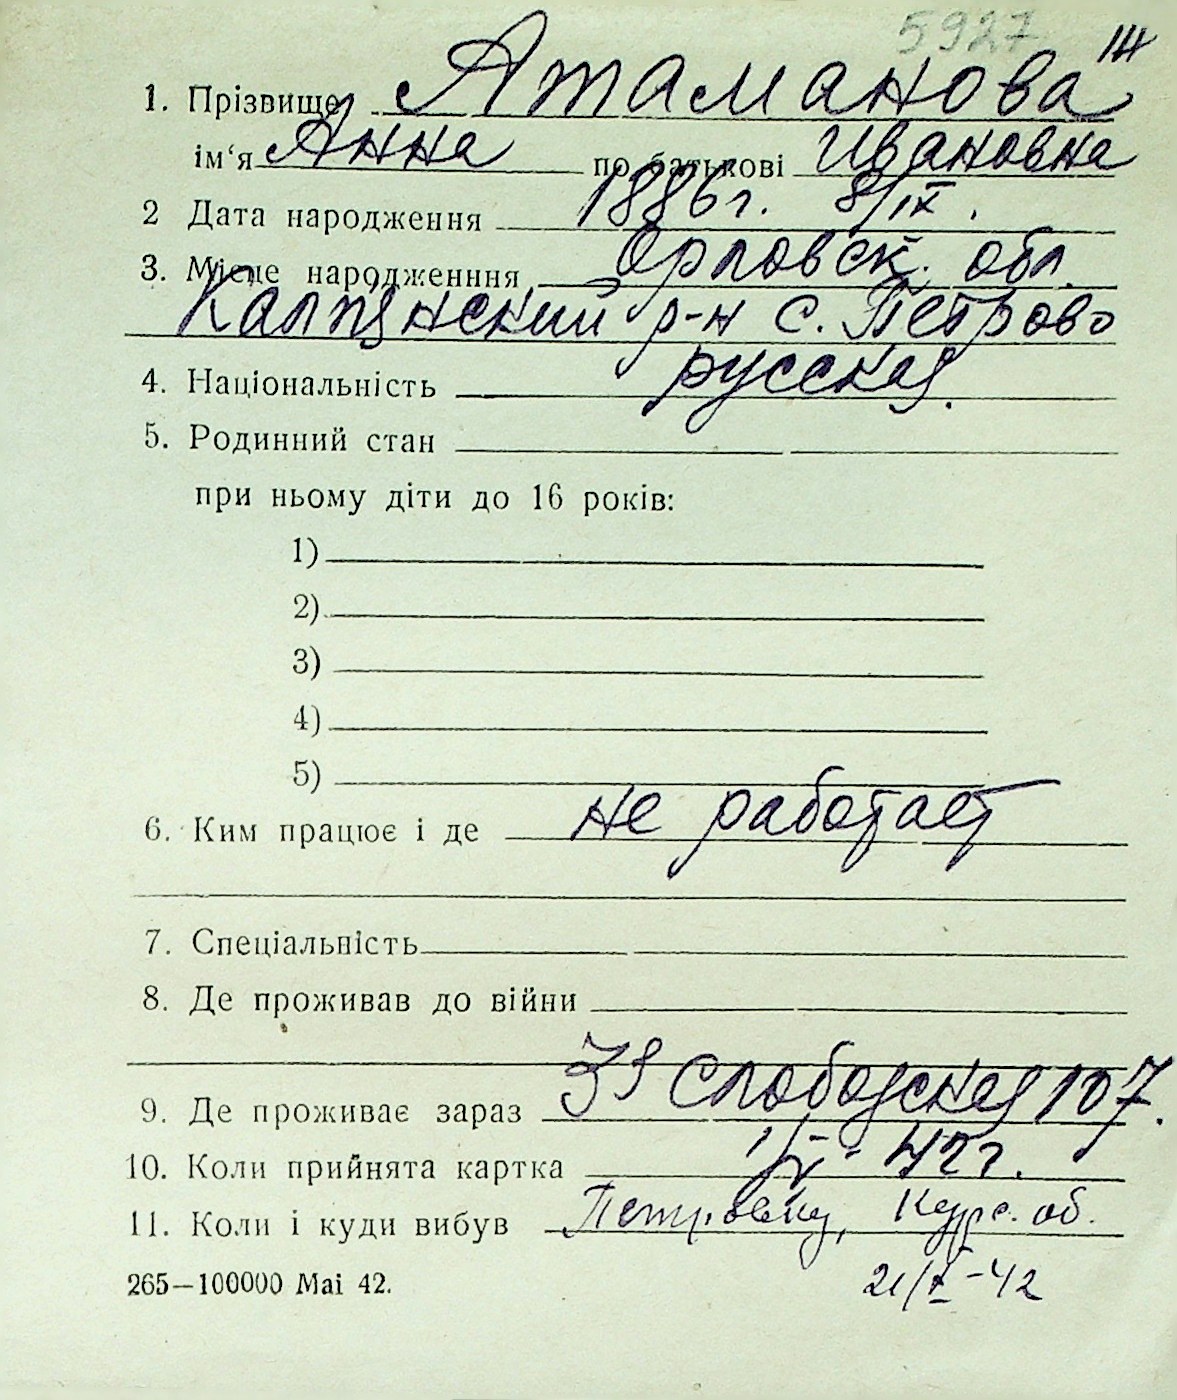 5927 14
1. Прізвище Атаманова
ім‘я Анна по батькові Ивановна
2 Дата народження 1886 г. 8/IX.
3. Місце народженння Орловск. обл.
Калпянский р-н с. Петрово
4. Національність русская.
5. Родинний стан
при ньому діти до 16 років:
1)
2)
3)
4)
5)
6. Ким працює і де не работает
7. Спеціальність
8. Де проживав до війни
9. Де проживає зараз Слободская 107.
10. Коли прийнята картка 42 г.
11. Коли і куди вибув Петровку, Курс. об.
265—100000 Mai 42.
21/X-42